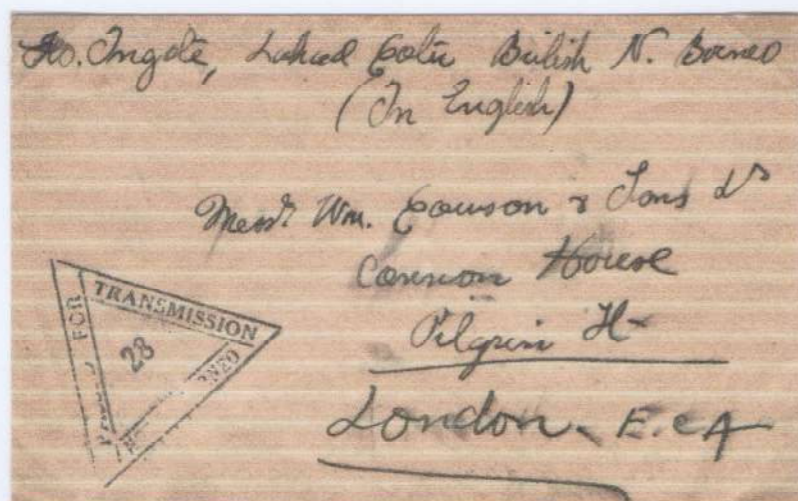 Ingate, Lahad Datu British N. Borneo
(In English)
Messrs. Wm. Dawson & Sons Ld
Cannon House
Pilgrim St
London. E.C.4
FOR TRANSMISSION
28